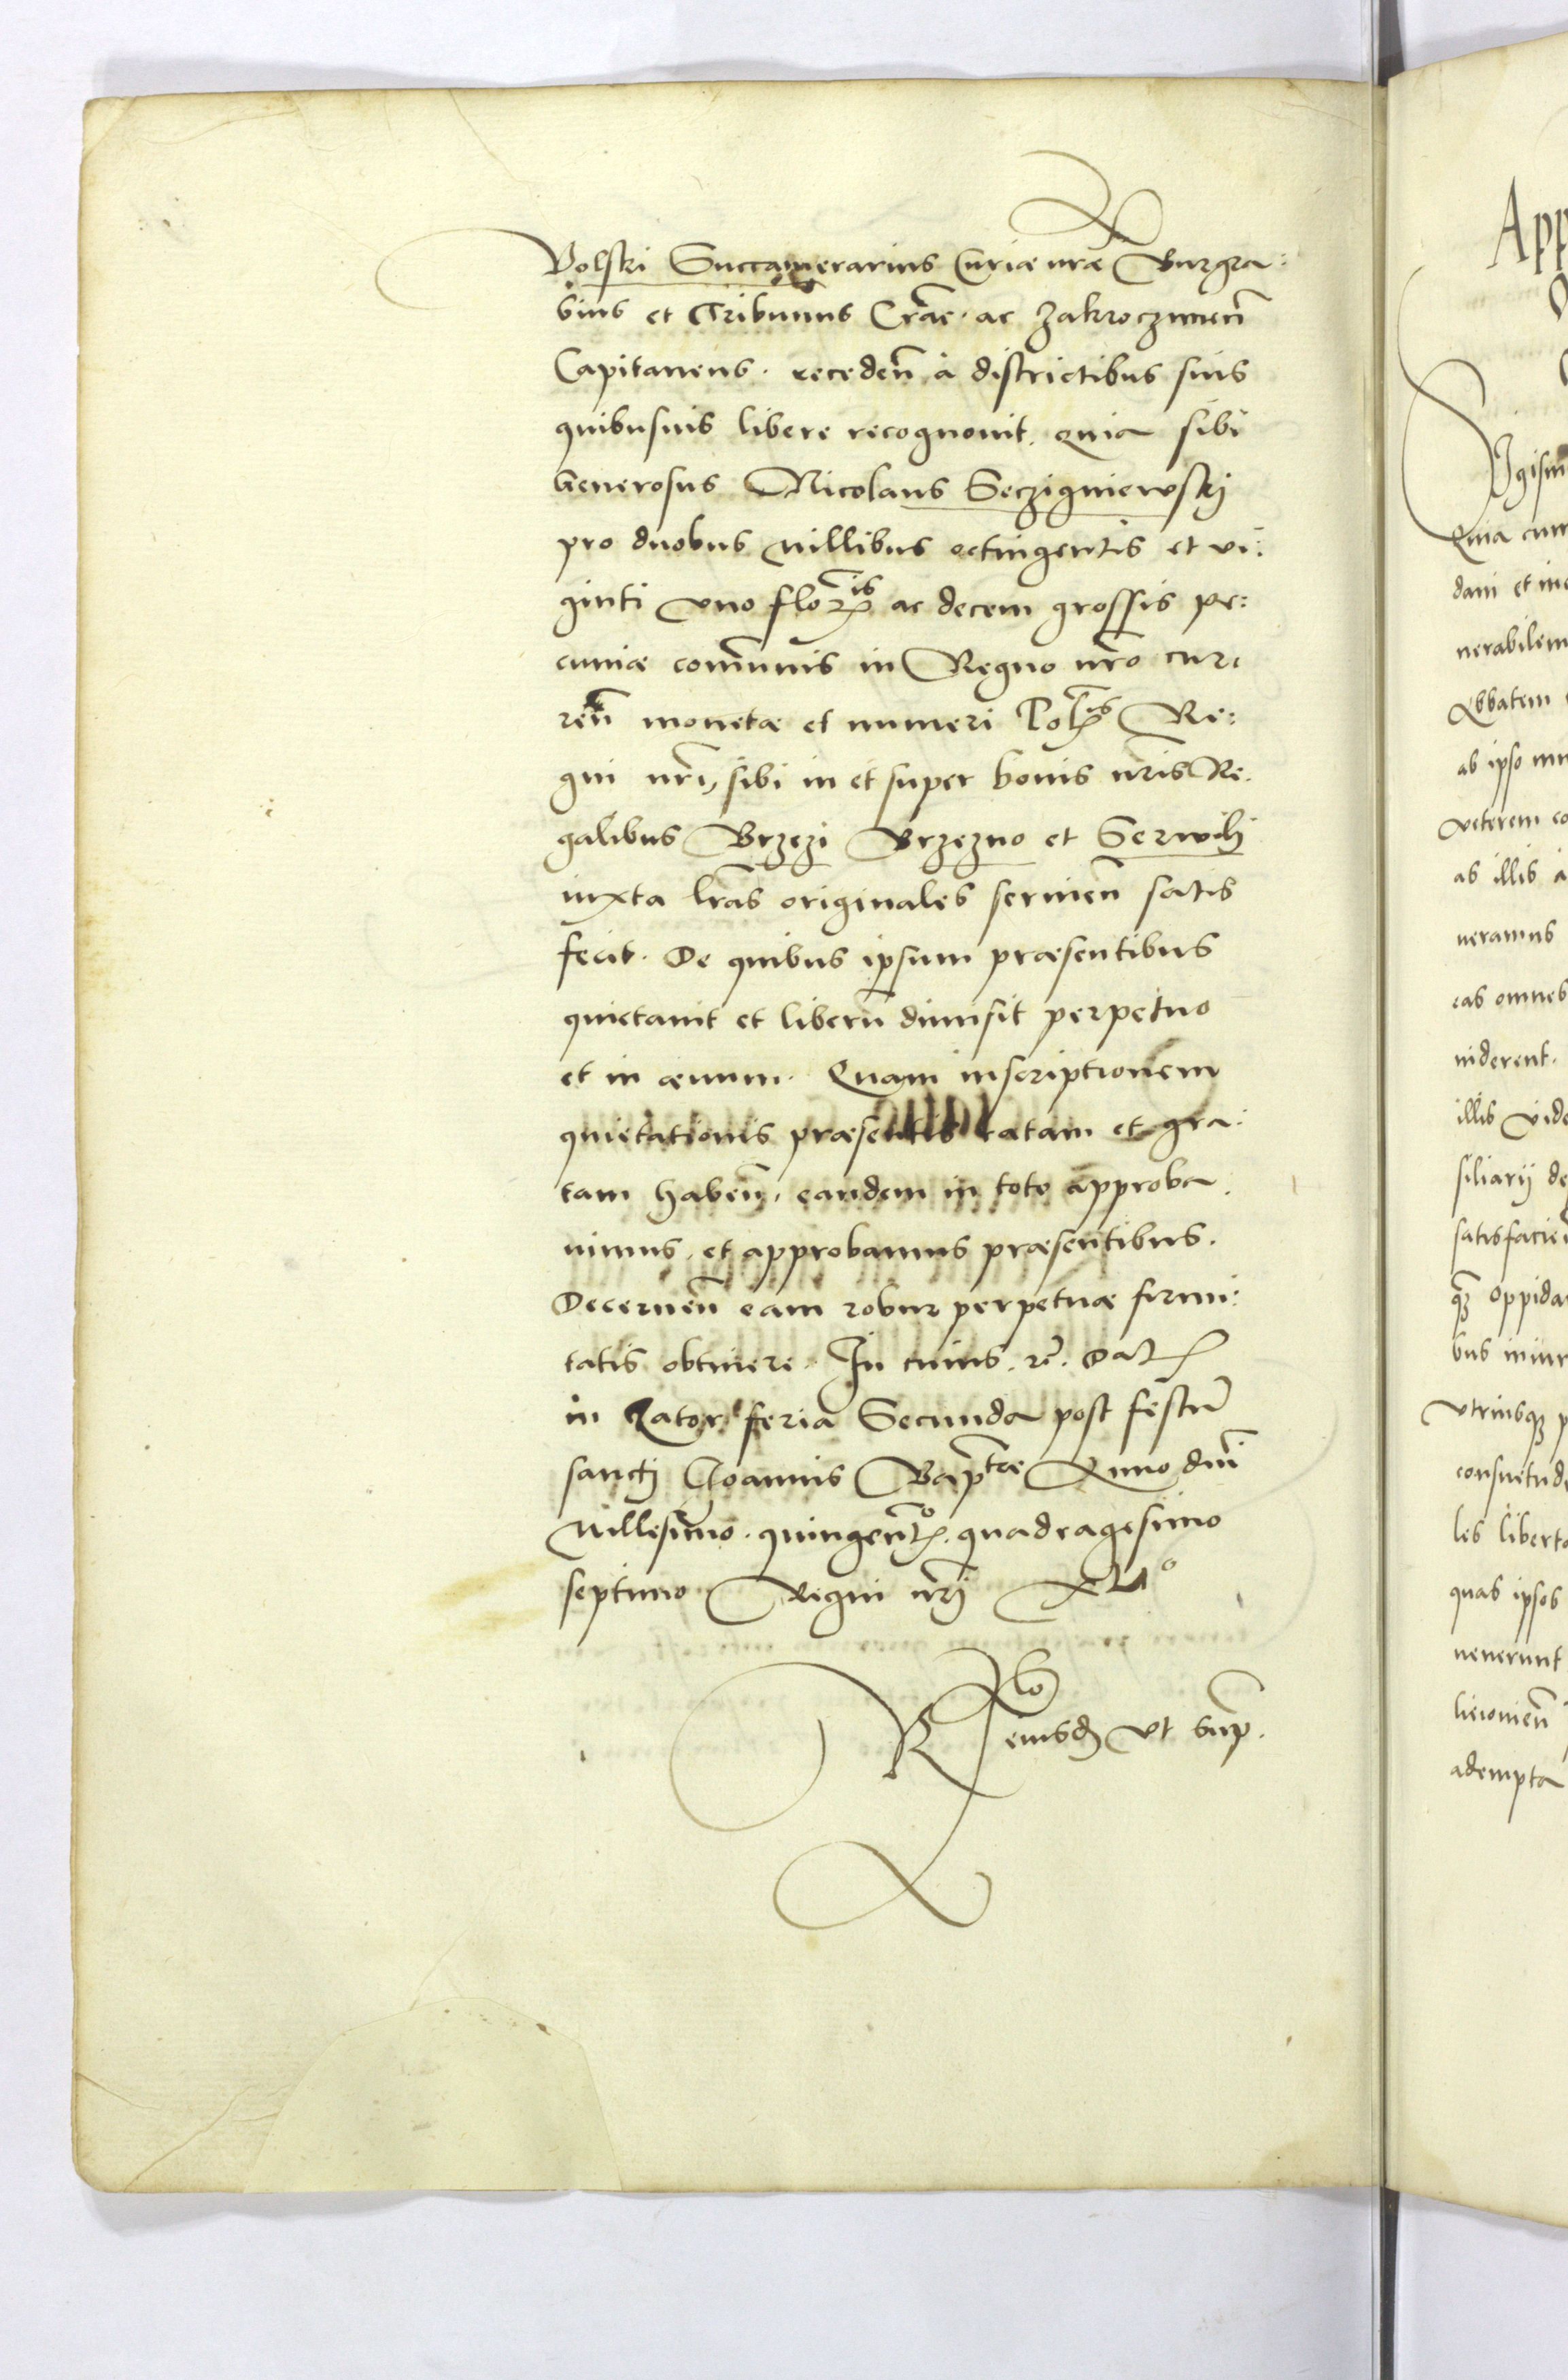 Volski Succamerarius Curiæ nr̃æ Burgra:
bius et Tribunus Crãc. ac Zakroczimen̄
Capitaneus. receden̄ à districtibus suis
quibusuis libere recognouit. quia sibi
Generosus Nicolaus Seczigniewskj
pro duobus millibus octingentis et vi:
ginti vno floren̄is ac decem grossis pe:
cuniæ com̄unis in Regno nr̃o cur:
ren̄ monetæ et numeri Pol̃is Re:
gni nr̃i, sibi in et super bonis nr̃is Re:
galibus Brzezi Brzezno et Serwilj
iuxta lr̃as originales seruien̄ satis
fecit. De quibus ipsum præsentibus
quietauit et liberũ dimisit perpetuo
et in æuum. Quam inscriptionem
quietationis præsentis ratam et gra:
tam haben̄, eandem in toto approba:
uimus. et approbamus præsentibus.
Decernen̄ eam robur perpetuæ firmi:
tatis obtinere. In cuius. rẽ. Dat̃
in feria Secunda post festũ
sanctj Joannis Bap̃tæ Anno dñi
Millesimo. quingent̃o. quadragesimo
septimo Regni nr̃j XLI°
Rlõ eiusd̃ vt sup̃.
App
Sigism
Quia cum
dam et in
nerabilem
Abbatem
ab ipso
veterem co
ab illis a
ueramus
eas omnes
uiderent.
illis vide
siliarij de
satisfacien̄
quæ̃ oppida
bus iniur
vtriusq; p
consuetud
les liberta
quas ipsos
uenerunt
adempta